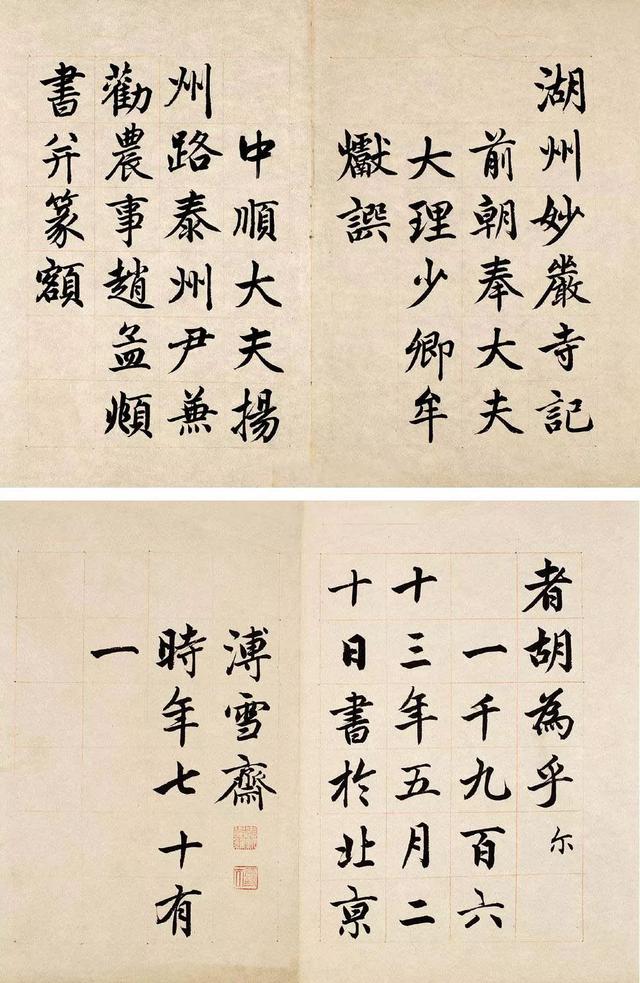 湖州妙嚴寺記
前朝奉大夫
大理少卿牟
巘譔
中順大夫揚
州路泰州尹兼
勸農事趙孟頫
書并篆額
者胡為乎尓
一千九百六
十三年五月二
十日書於北京
溥雪齋
時年七十有
一